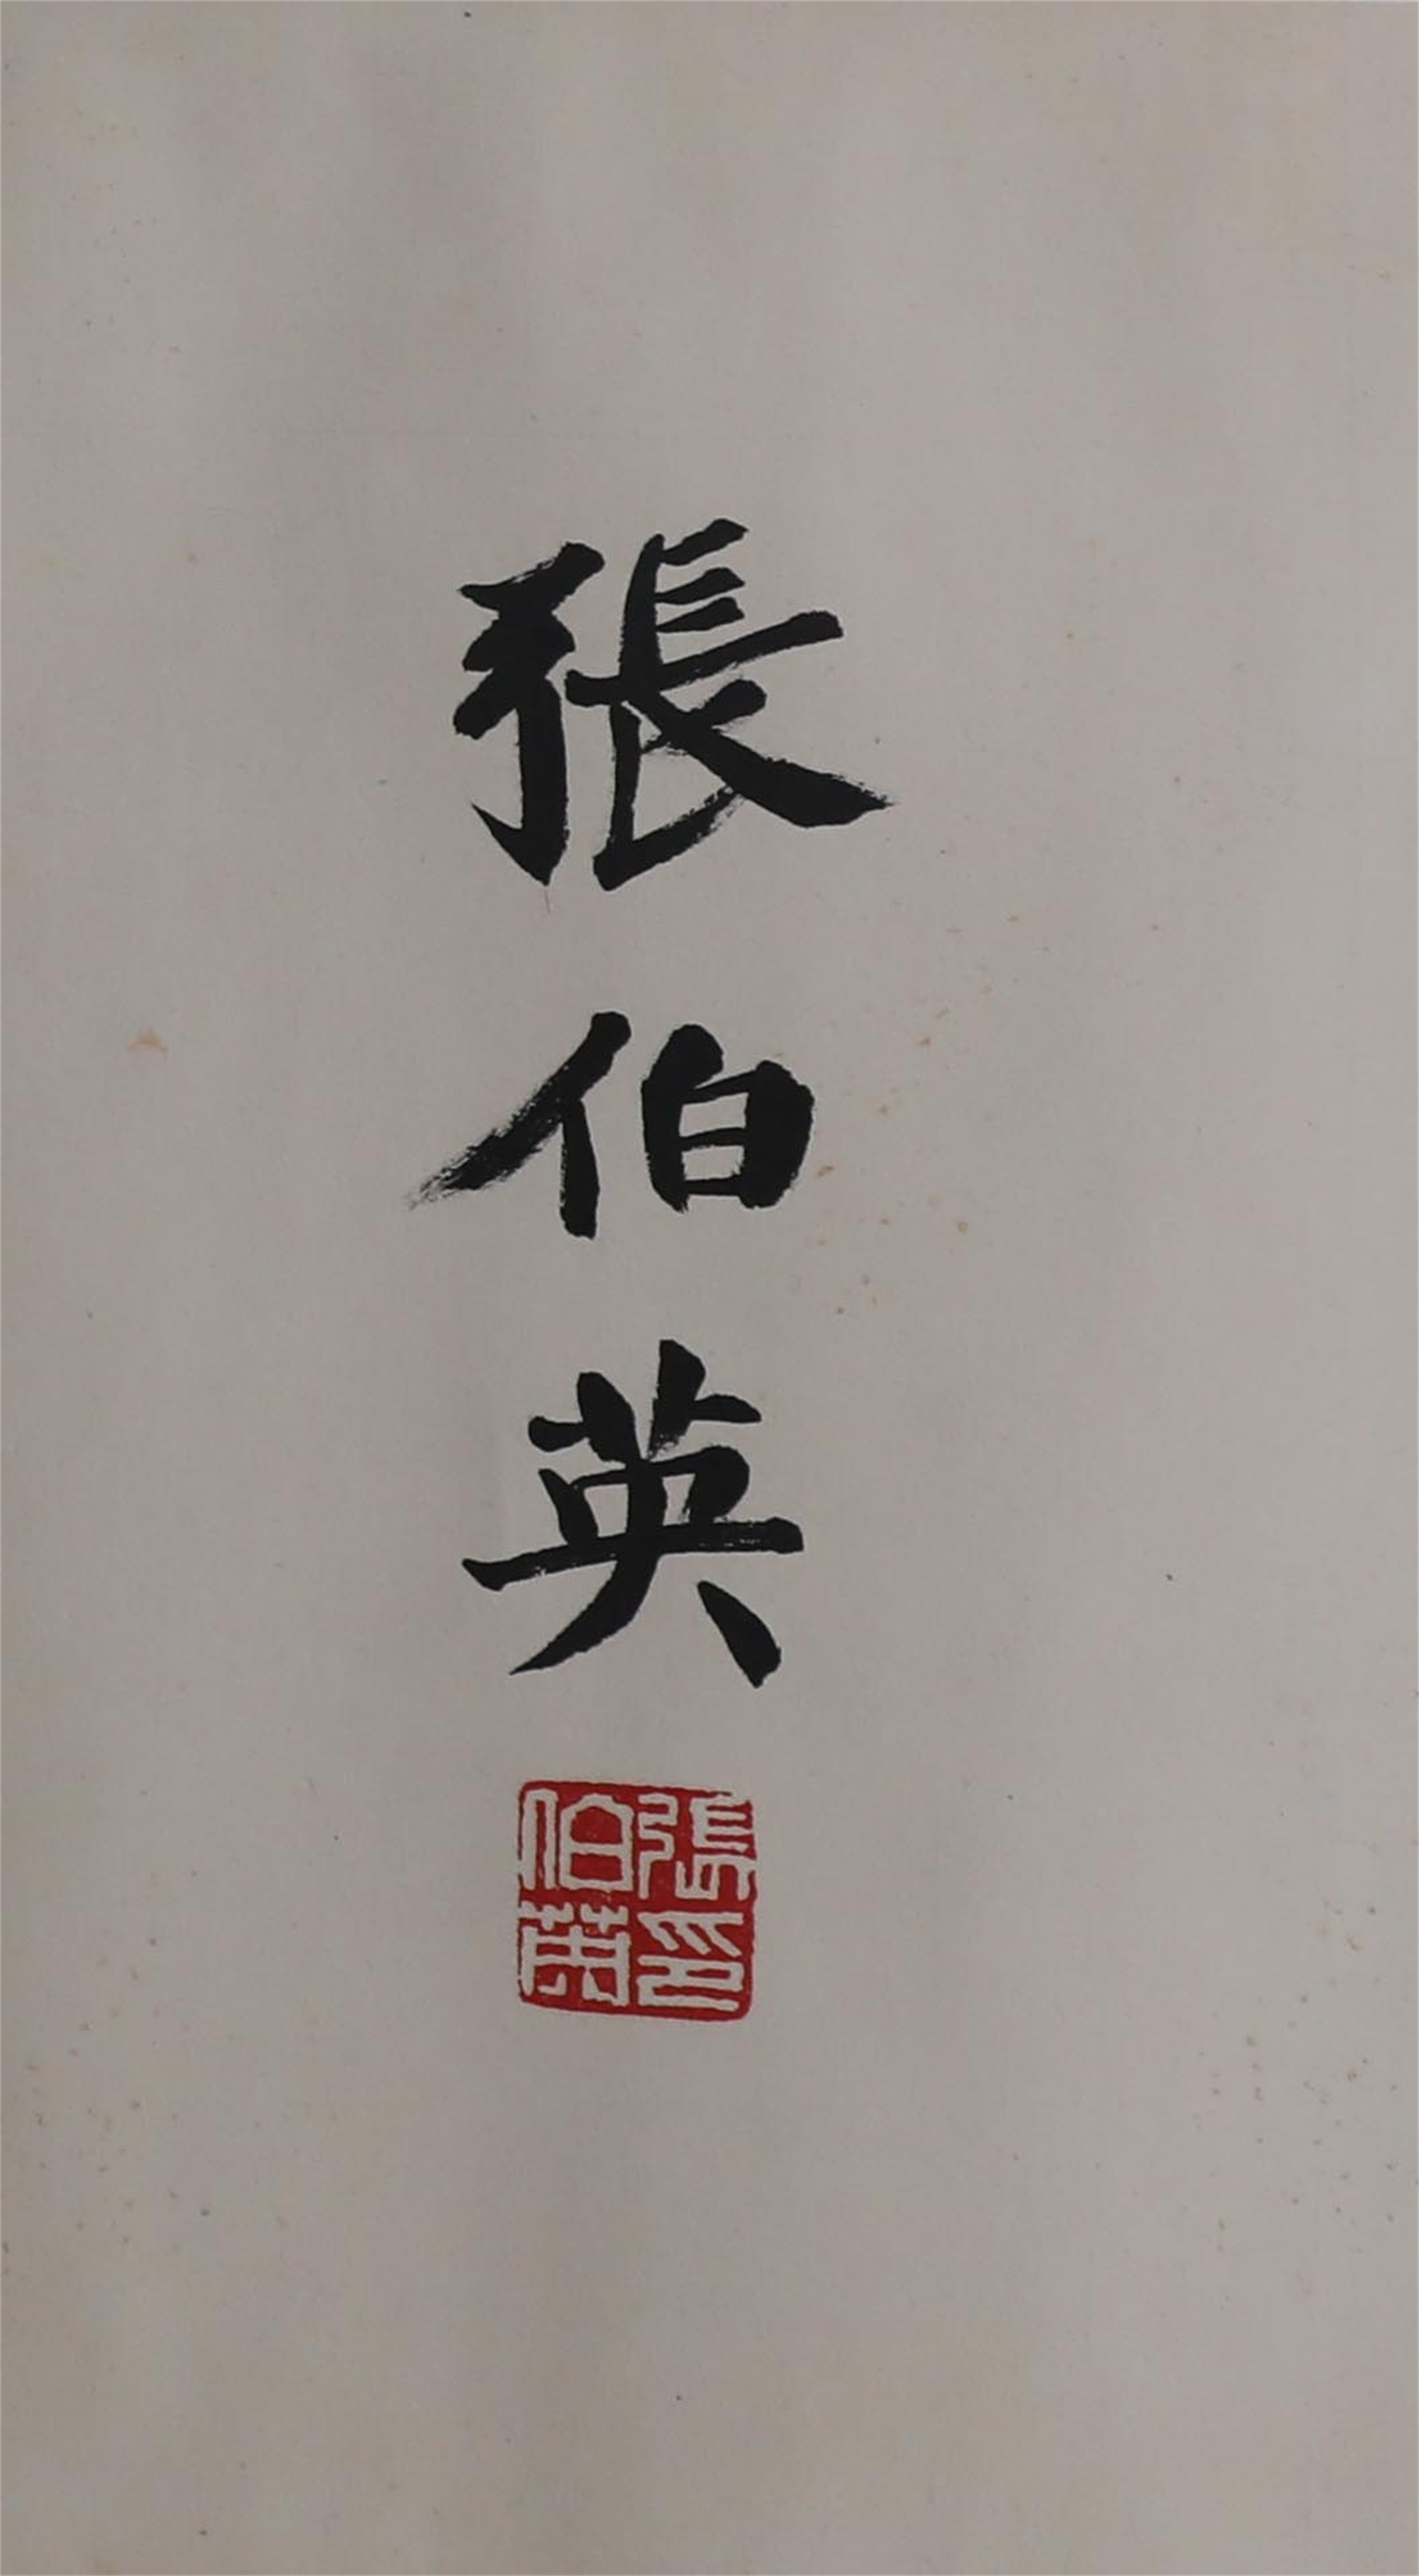 張伯英
張印
伯英